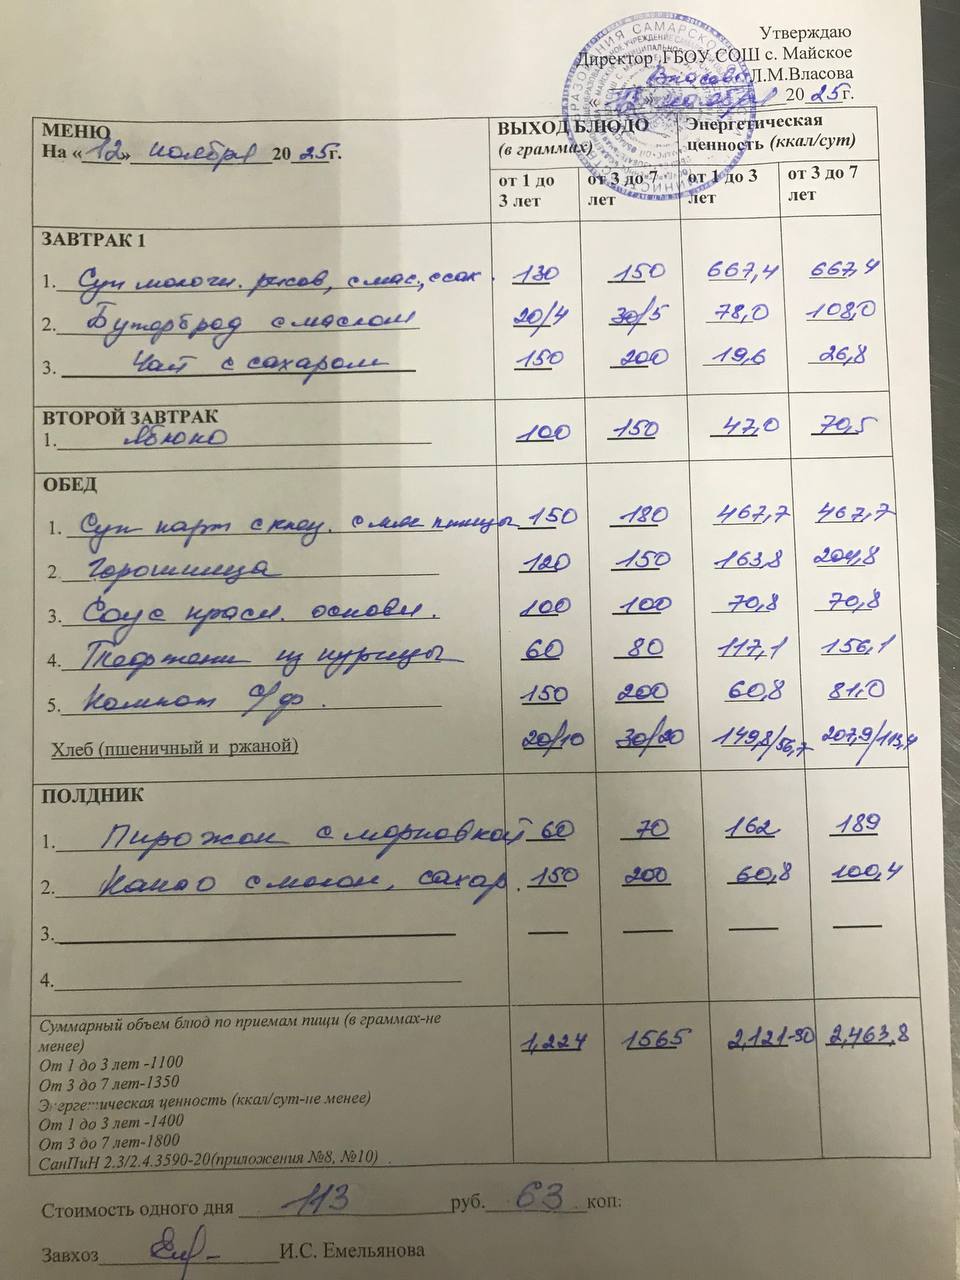 Утверждаю
Директор ГБОУ СОШ с. Майское
Власова Л.М.Власова
«12» ноября 2025г.
МЕНЮ
На «12» ноября 2025г.
ВЫХОД БЛЮДО
(в граммах)
Энергетическая
ценность (ккал/сут)
от 1 до 3 лет от 3 до 7 лет от 1 до 3 лет от 3 до 7 лет
ЗАВТРАК 1
1. Суп молочн. рисов, с мас., с сах. 130 150 667,4 667,4
2. Бутерброд с маслом 20/4 30/5 78,0 108,0
3. Чай с сахаром 150 200 19,6 26,8
ВТОРОЙ ЗАВТРАК
1. Яблоко 100 150 47,0 70,5
ОБЕД
1. Суп карт с клец. с мяс птицы 150 180 467,7 467,7
2. Горошница 120 150 163,8 204,8
3. Соус красн. основн. 100 100 70,8 70,8
4. Тефтели из курицы 60 80 117,1 156,1
5. Компот с/ф. 150 200 60,8 81,0
Хлеб (пшеничный и ржаной) 20/10 30/20 149,8/56,7 207,9/113,4
ПОЛДНИК
1. Пирожок с морковкой 60 70 162 189
2. Какао с молок, сахар. 150 200 60,8 100,4
3.
4.
Суммарный объем блюд по приемам пищи (в граммах-не
менее)
От 1 до 3 лет -1100
От 3 до 7 лет-1350
Энергетическая ценность (ккал/сут-не менее)
От 1 до 3 лет -1400
От 3 до 7 лет-1800
СанПиН 2.3/2.4.3590-20(приложения №8, №10)
1,224 1565 2,121-30 2,463,8
Стоимость одного дня 113 руб. 63 коп:
Завхоз И.С. Емельянова